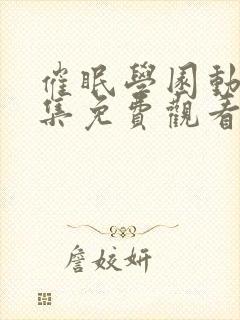 催眠學園動
集免費觀看
詹姣妍